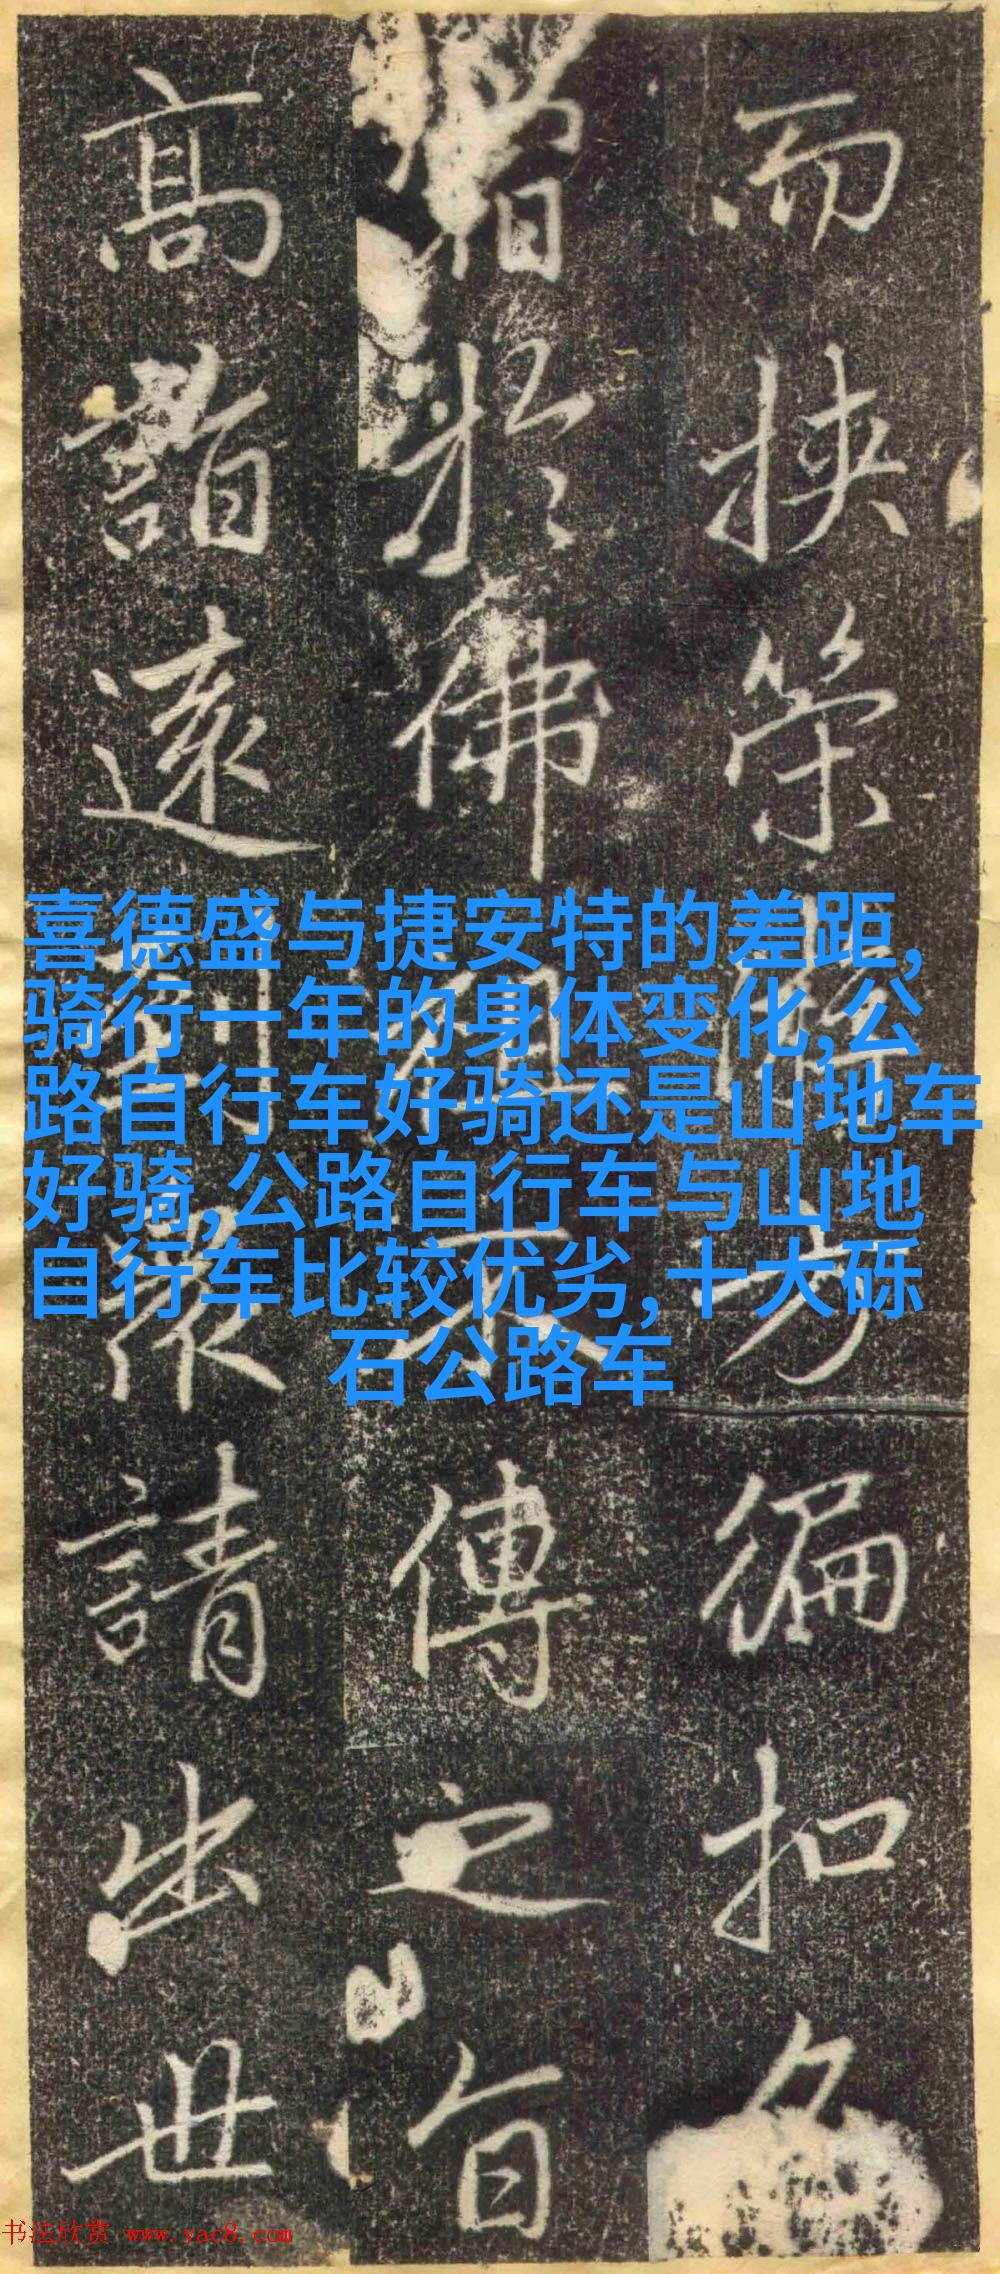 而挾
徧扣
於佛祖不傳之旨
高詣遠到衆請出世
喜德盛与捷安特的差距,
骑行一年的身体变化,公
路自行车好骑还是山地车
好骑,公路自行车与山地
自行车比较优劣,十大砾
石公路车
书法欣赏 www.yac8.com